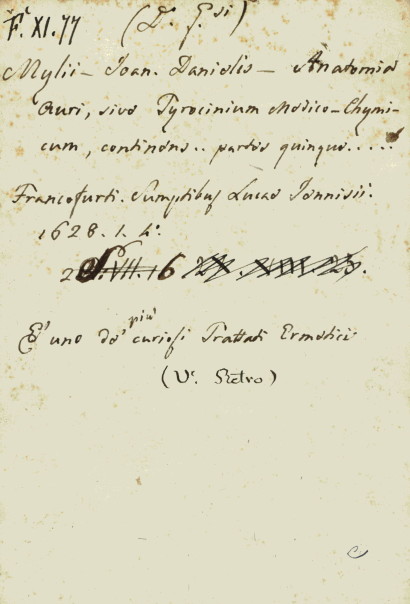 F. XI. 77 (D. G.si)
Mylii - Joan. Danielis - Anatomia
Auri, sive Tyrocinium Medico-Chymi-
cum, continens.. partes quinque.....
Francofurti. Sumptibus Lucae Jennisii.
1628. 1. 4°.
E' uno de' più curiosi Trattati Ermetici
(V. Retro)